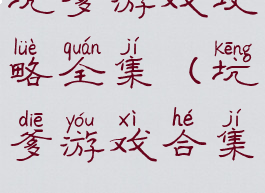 坑爹游戏攻
lüè quán jí kēng
略全集（坑
diē yóu xì hé jí
爹游戏合集